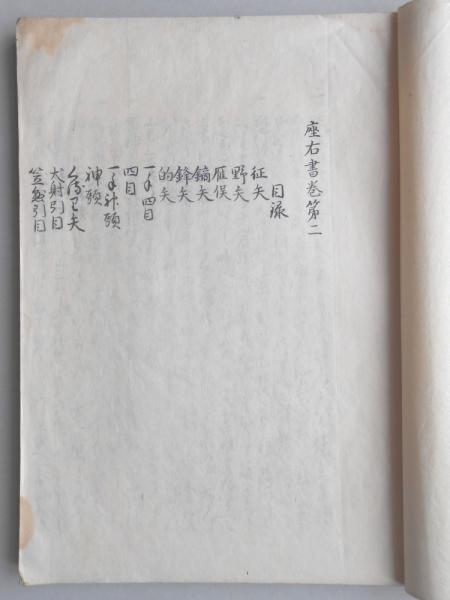 座右書巻第二
目录
征矢
野矢
雁俣
鏑矢
鋒矢
的矢
一手四目
四目
一手神頭
神頭
矢
犬射引目
笠懸引目